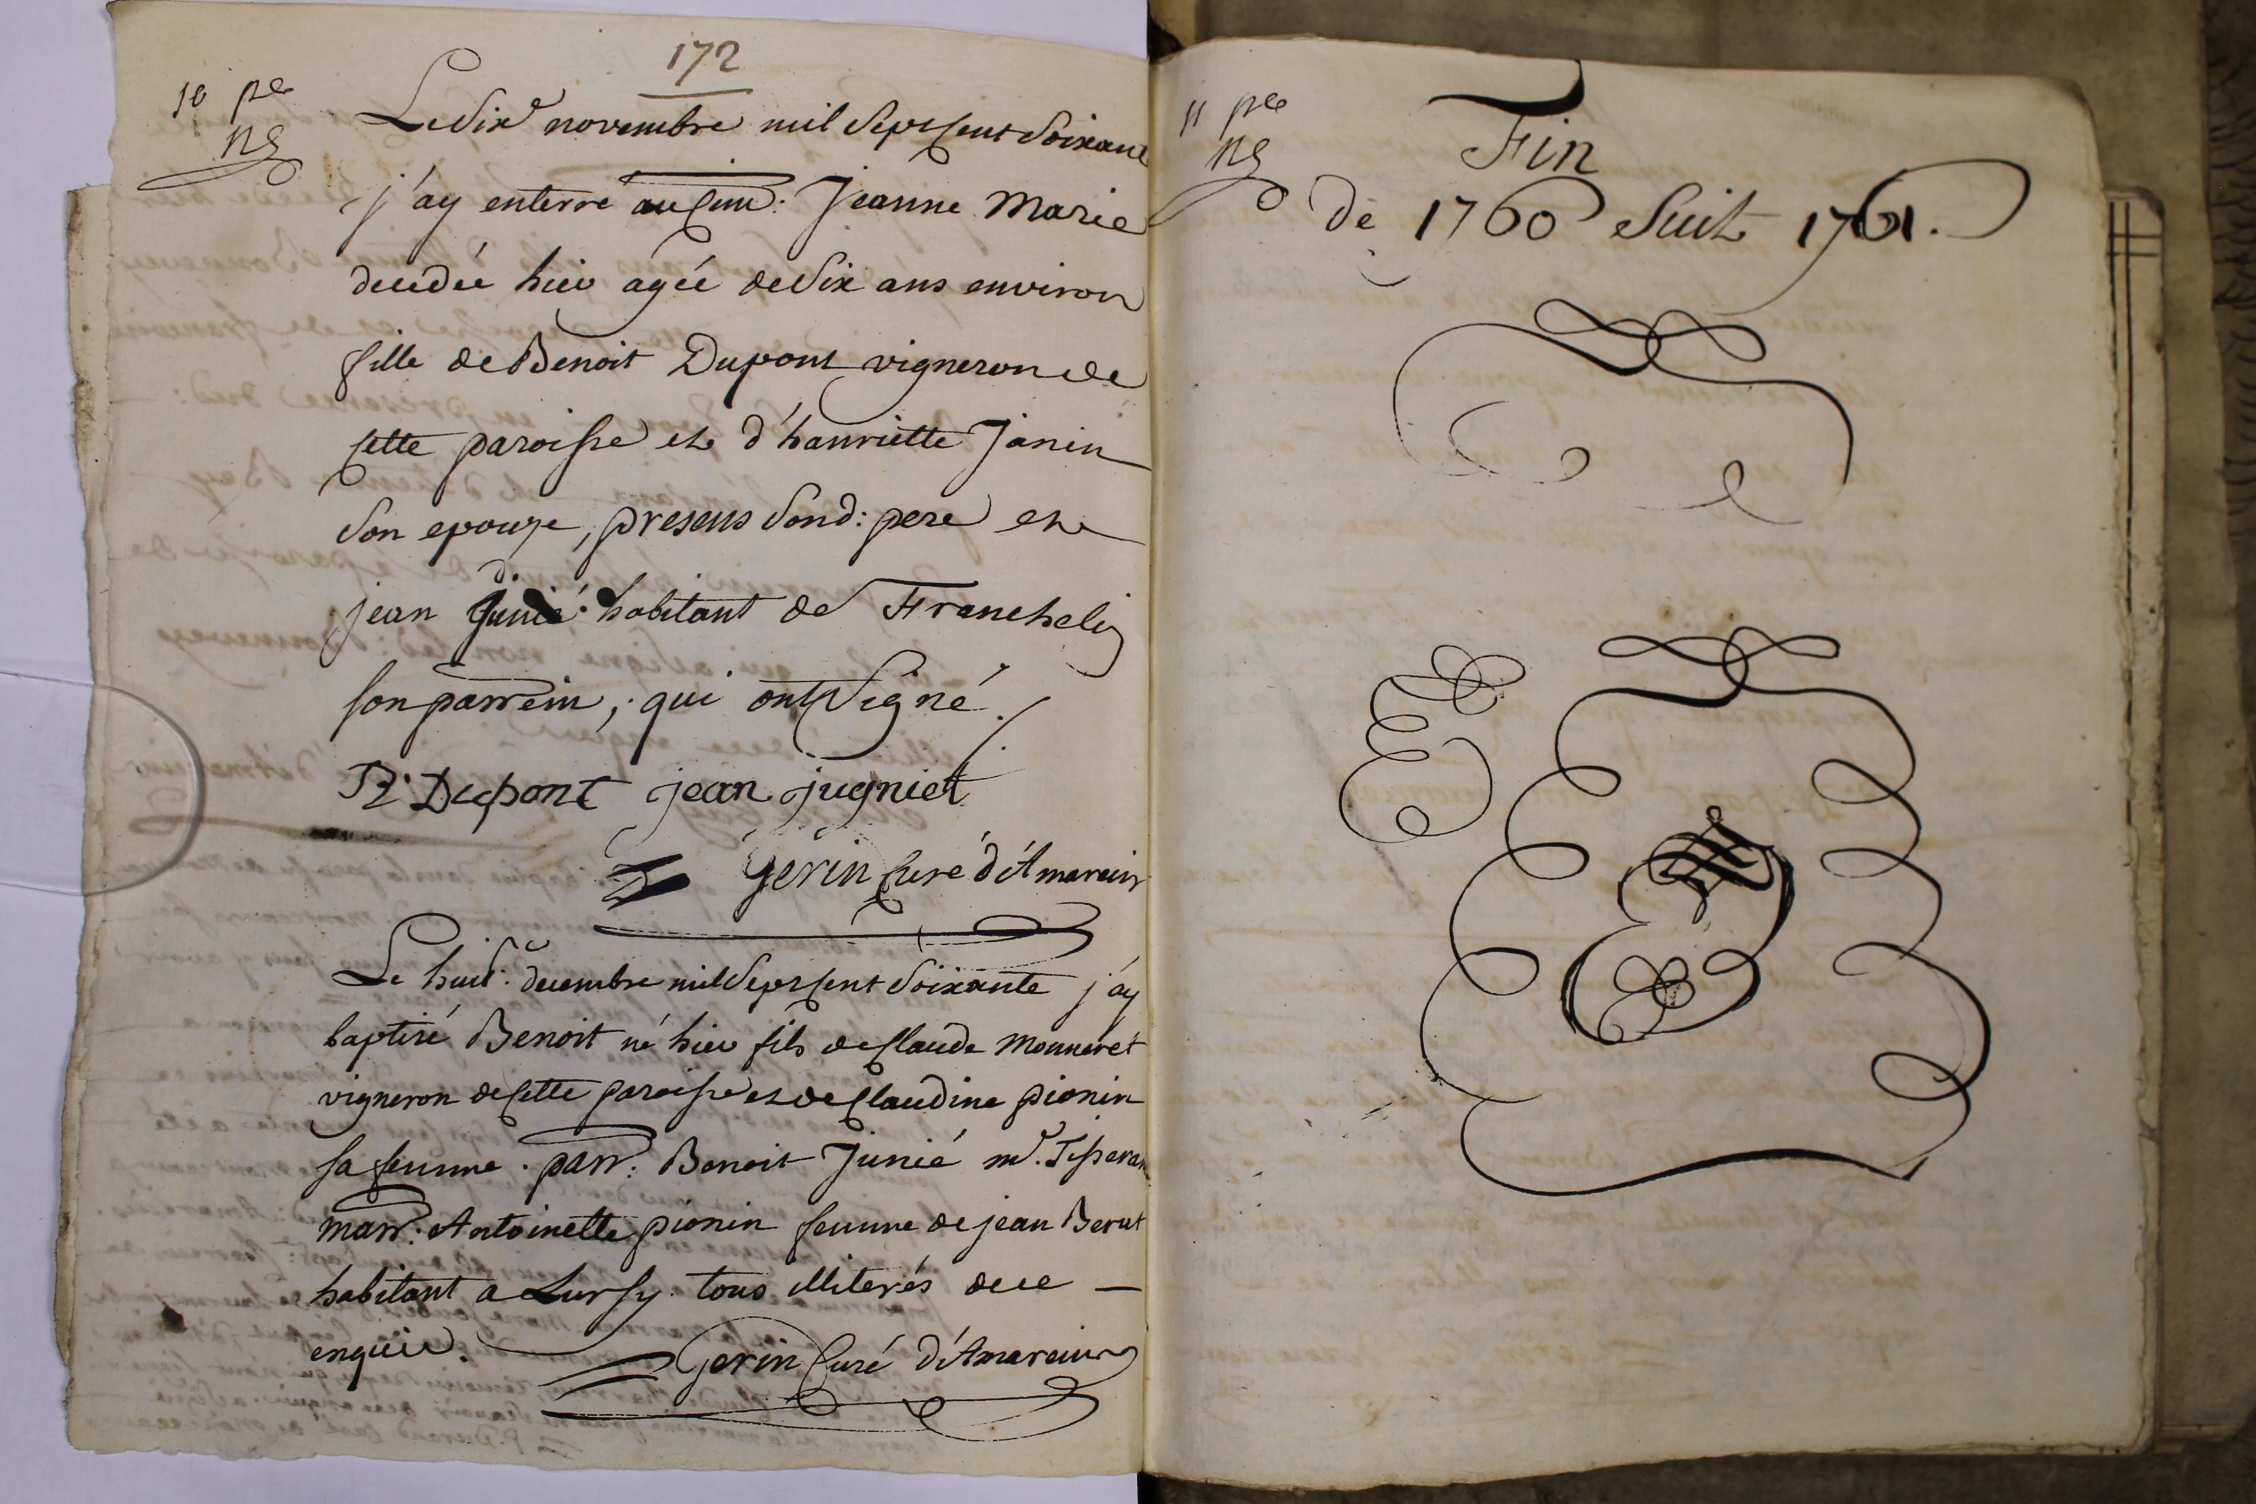 172
10 pce
Le dixe novembre mil sept cent soixante
j'ay enterré au cim: Jeanne Marie
decedée hier agée de six ans environ
fille de Benoit Dupont vigneron de
cette paroisse et d'hanriette Janin
son epouze, presens sond: pere et
jean Junié habitant de Franchelin
son parrein, qui ont signé.
B. Dupont jean jugniet
Gerin Curé d'Amareins
Le huit. decembre mil sept cent soixante j'ay
baptisé Benoit né hier fils de Claude Monneret
vigneron de cette paroisse et de Claudine pionin
sa femme. parr: Benoit Junié me. Tisseran
marr: Antoinette pionin femme de jean Berut
habitant a Lursy. tous illiterés de ce
enquis.
Gerin Curé d'Amareins
11 pce
Fin
de 1760 Suit 1761.